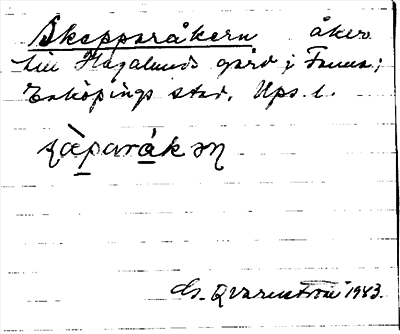 Skepparåkern åker
till Hagalunds gård i Fanna;
Enköpings stad. Ups. l.
ʂäparåkəɳ
G. Qvarnström 1983.